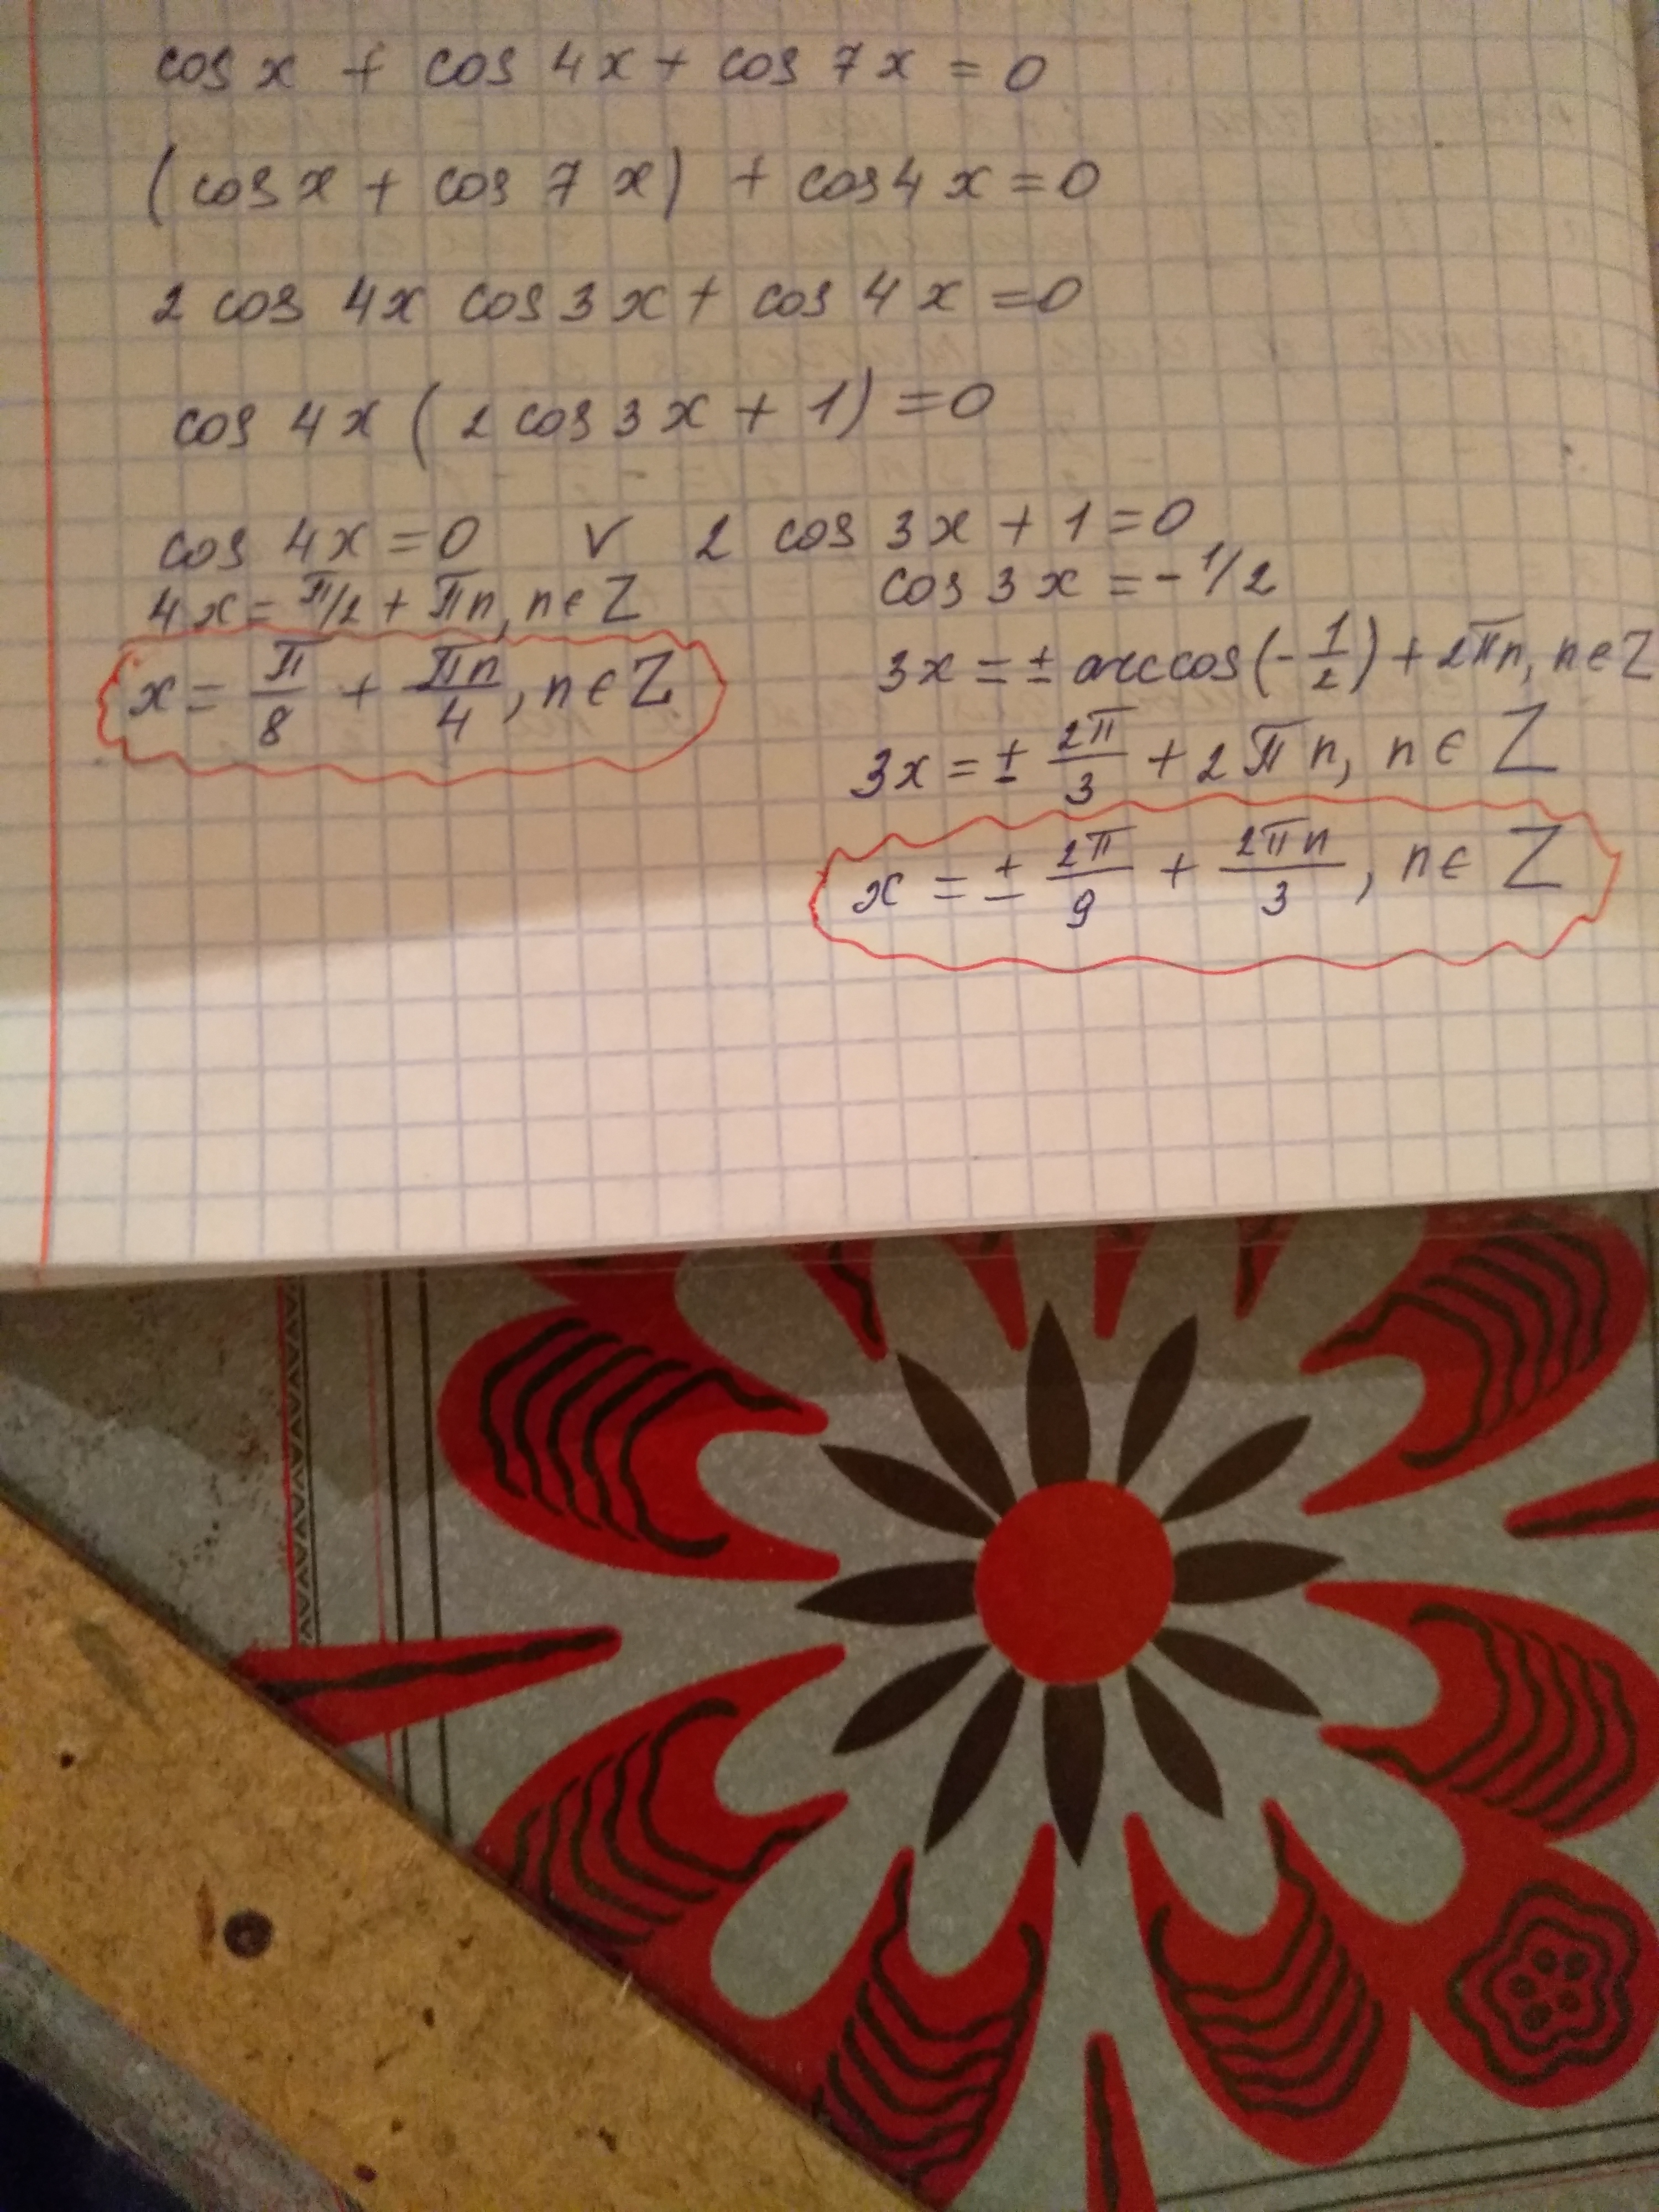 cos x + cos 4x + cos 7x = 0
(cos x + cos 7x) + cos 4x = 0
2 cos 4x cos 3x + cos 4x = 0
cos 4x (2 cos 3x + 1) = 0
cos 4x = 0 ∨ 2 cos 3x + 1 = 0
4x = π/2 + πn, n ∈ Z
x = π/8 + πn/4, n ∈ Z
cos 3x = -1/2
3x = ± arccos(-1/2) + 2πn, n ∈ Z
3x = ± 2π/3 + 2πn, n ∈ Z
x = ± 2π/9 + 2πn/3, n ∈ Z